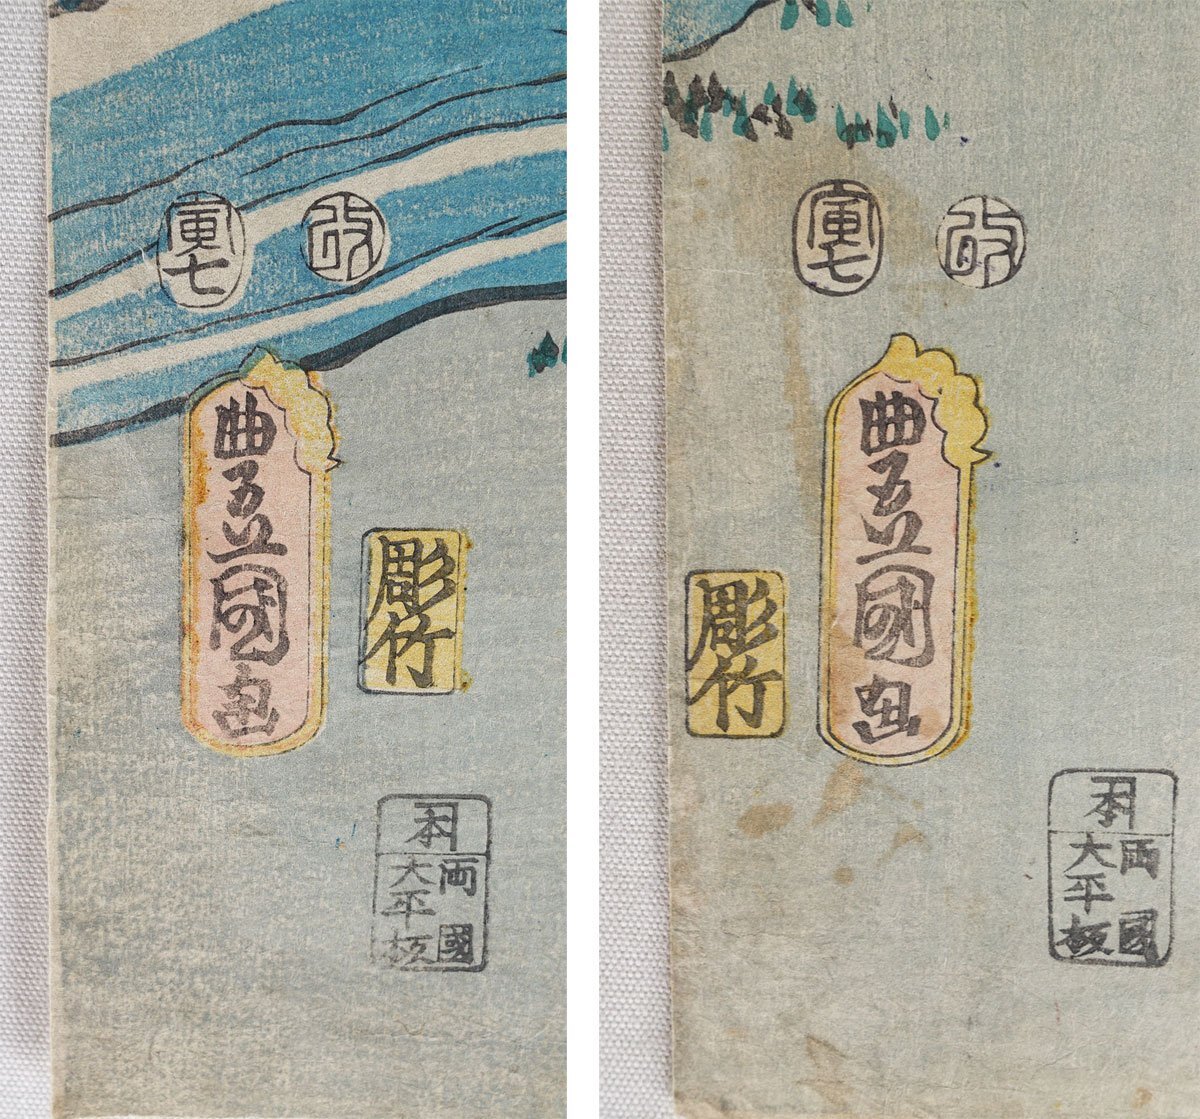 改
寅七
豊国画
彫竹
本
両國
大平板
改
寅七
豊国画
彫竹
本
両國
大平板